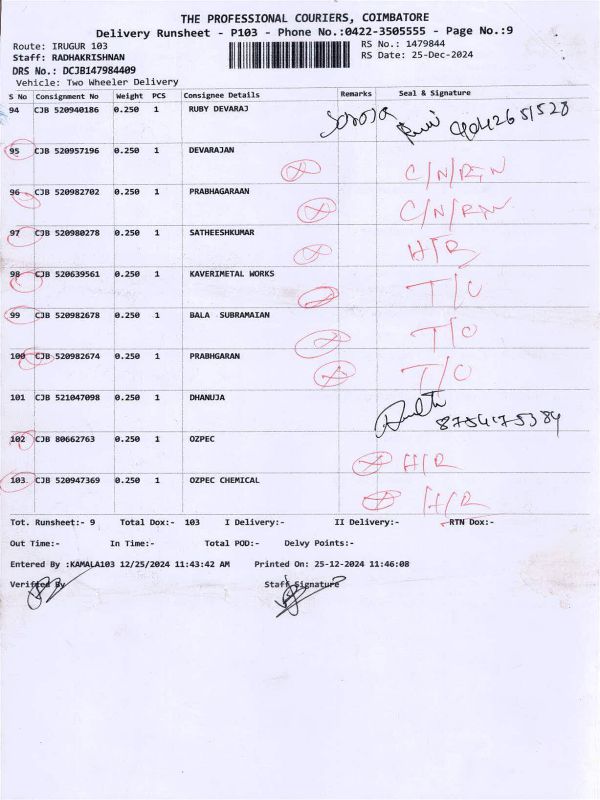 THE PROFESSIONAL COURIERS, COIMBATORE
Delivery Runsheet - P103 - Phone No.:0422-3505555 - Page No.:9
Route: IRUGUR 103 RS No.: 1479844
Staff: RADHAKRISHNAN RS Date: 25-Dec-2024
DRS No.: DCJB147984409
Vehicle: Two Wheeler Delivery
S No Consignment No Weight PCS Consignee Details Remarks Seal & Signature
94 CJB 520940186 0.250 1 RUBY DEVARAJ
95 CJB 520957196 0.250 1 DEVARAJAN C/N/RN
96 CJB 520982702 0.250 1 PRABHAGARAAN C/N/RN
97 CJB 520980278 0.250 1 SATHEESHKUMAR H/R
98 CJB 520639561 0.250 1 KAVERIMETAL WORKS T/O
99 CJB 520982678 0.250 1 BALA SUBRAMAIAN T/O
100 CJB 520982674 0.250 1 PRABHGARAN T/O
101 CJB 521047098 0.250 1 DHANUJA 8754175384
102 CJB 80662763 0.250 1 OZPEC H/R
103 CJB 520947369 0.250 1 OZPEC CHEMICAL H/R
Tot. Runsheet:- 9 Total Dox:- 103 I Delivery:- II Delivery:- RTN Dox:-
Out Time:- In Time:- Total POD:- Delvy Points:-
Entered By :KAMALA103 12/25/2024 11:43:42 AM Printed On: 25-12-2024 11:46:08
Verified By Staff Signature